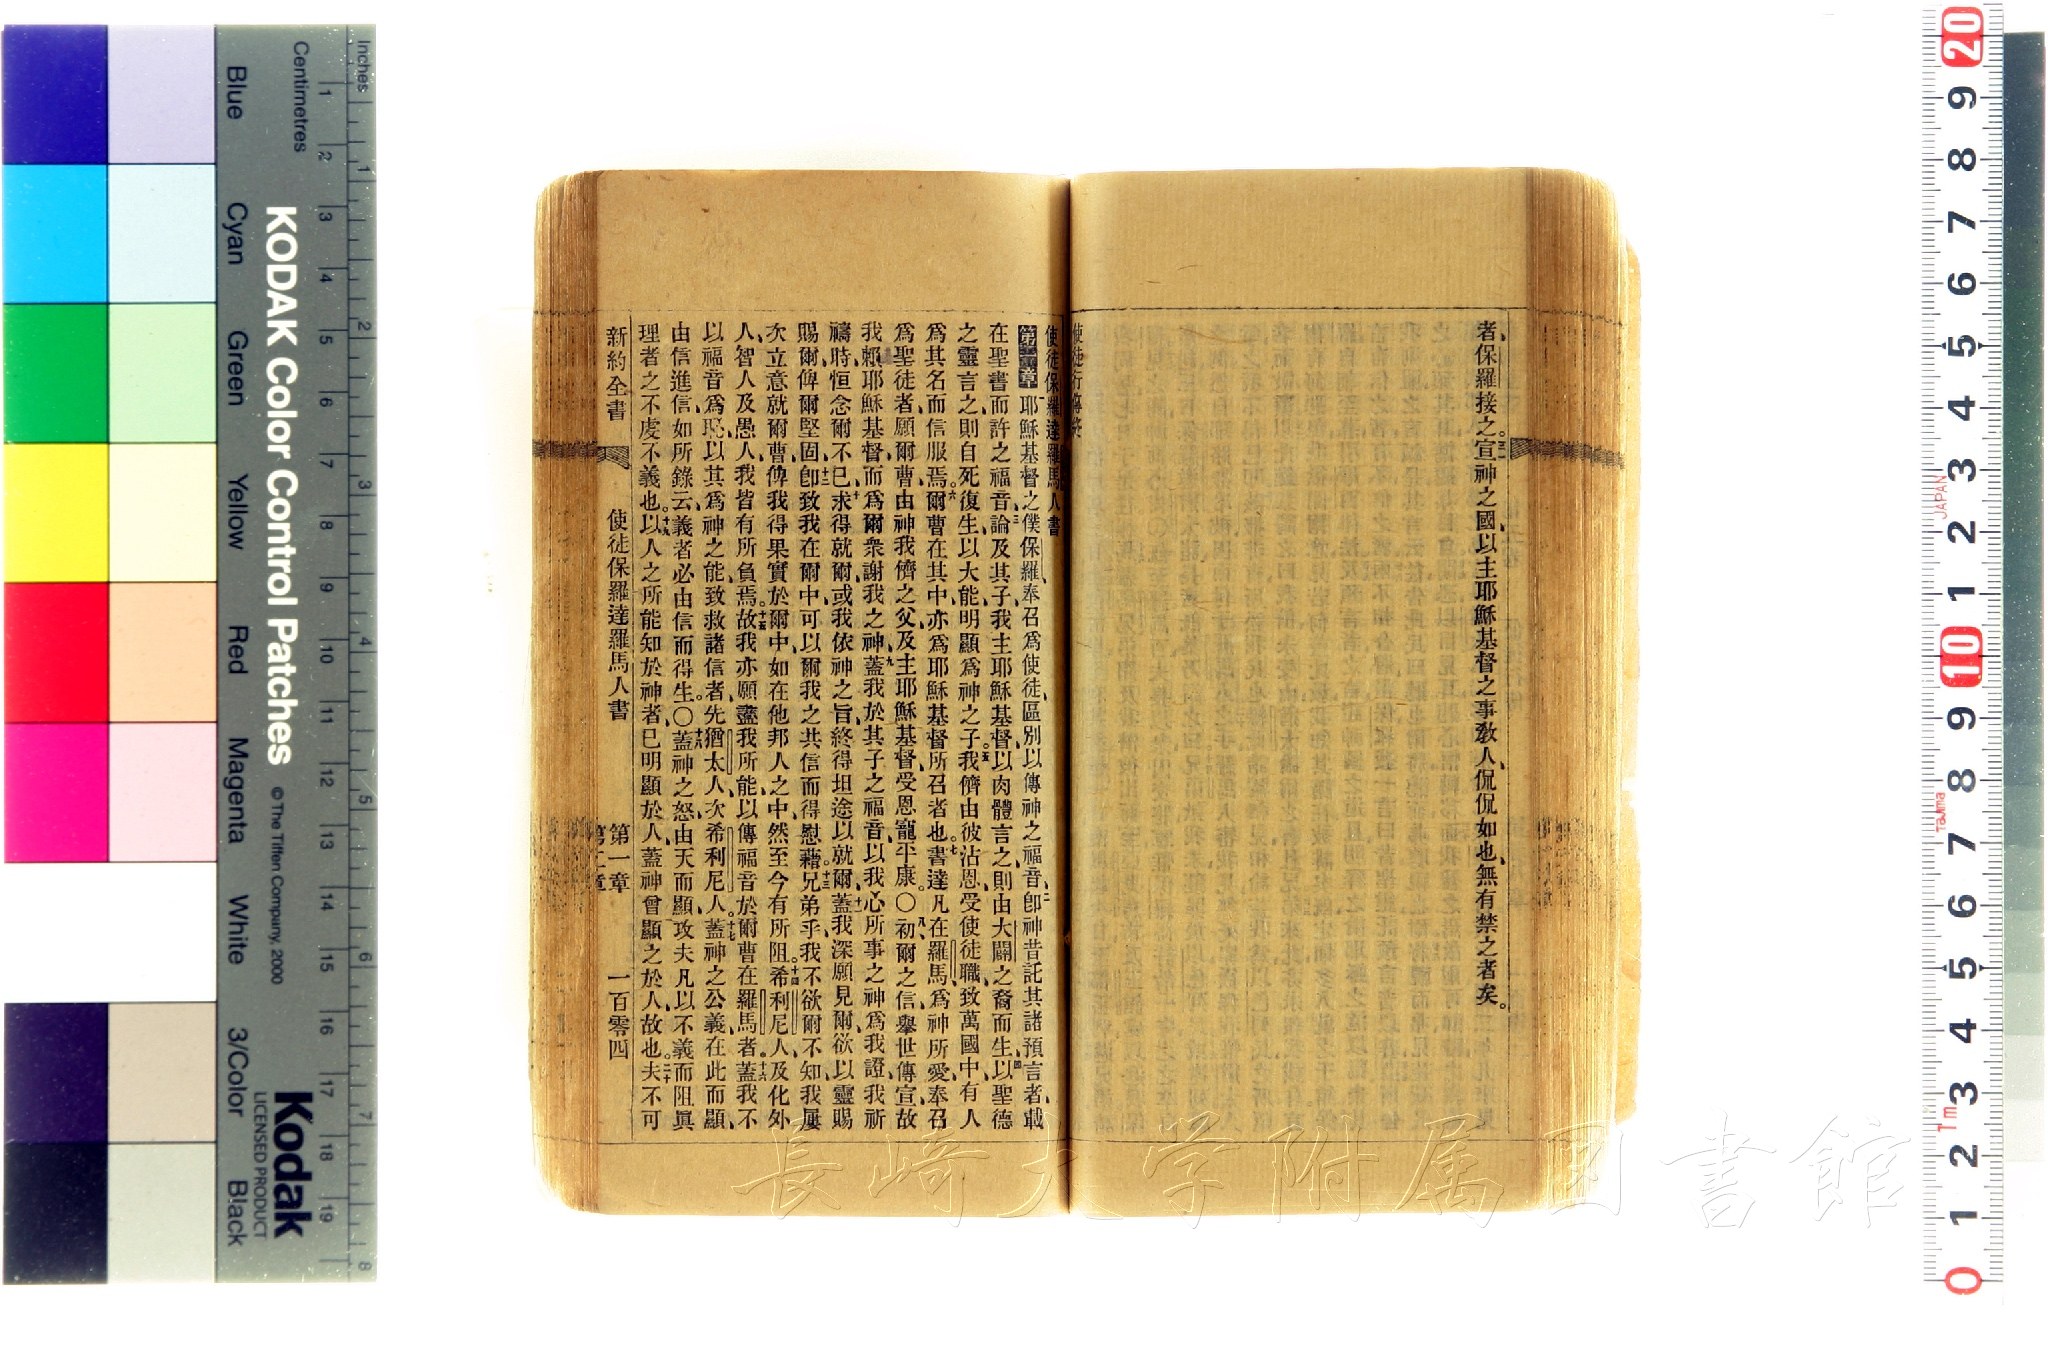 者保羅接之宣神之國以主耶穌基督之事教人侃侃如也無有禁之者矣。
使徒行傳終
使徒保羅達羅馬人書
第一章 耶穌基督之僕保羅奉召爲使徒區別以傳神之福音卽神昔託其諸預言者載
在聖書而許之福音論及其子我主耶穌基督以肉體言之則由大闢之裔而生以聖德
之靈言之則自死復生以大能明顯爲神之子我儕由彼沾恩受使徒職致萬國中有人
爲其名而信服焉爾曹在其中亦爲耶穌基督所召者也書達凡在羅馬爲神所愛奉召
爲聖徒者願爾曹由神我儕之父及主耶穌基督受恩寵平康〇初爾之信舉世傳宣故
我賴耶穌基督而爲爾衆謝我之神蓋我於其子之福音以我心所事之神爲我證我祈
禱時恒念爾不已求得就爾或我依神之旨終得坦途以就爾蓋我深願見爾欲以靈賜
賜爾俾爾堅固卽致我在爾中可以爾我之共信而得慰藉兄弟乎我不欲爾不知我屢
次立意就爾曹俾我得果實於爾中如在他邦人之中然至今有所阻希利尼人及化外
人智人及愚人我皆有所負焉故我亦願盡我所能以傳福音於爾曹在羅馬者蓋我不
以福音爲恥以其爲神之能致救諸信者先猶太人次希利尼人蓋神之公義在此而顯
由信進信如所錄云義者必由信而得生〇蓋神之怒由天而顯攻夫凡以不義而阻眞
理者之不虔不義也以人之所能知於神者已明顯於人蓋神曾顯之於人故也夫不可
新約全書 使徒保羅達羅馬人書 第一章 第二章 一百零四
長崎大学附属図書館
Inches
Centimetres
KODAK Color Control Patches © The Tiffen Company, 2000
Kodak
LICENSED PRODUCT
Blue Cyan Green Yellow Red Magenta White 3/Color Black
1 2 3 4 5 6 7 8 9 10 11 12 13 14 15 16 17 18 19
1 2 3 4 5 6 7 8
20 9 8 7 6 5 4 3 2 1 10 9 8 7 6 5 4 3 2 1 0
JAPAN
Tajima
Tm